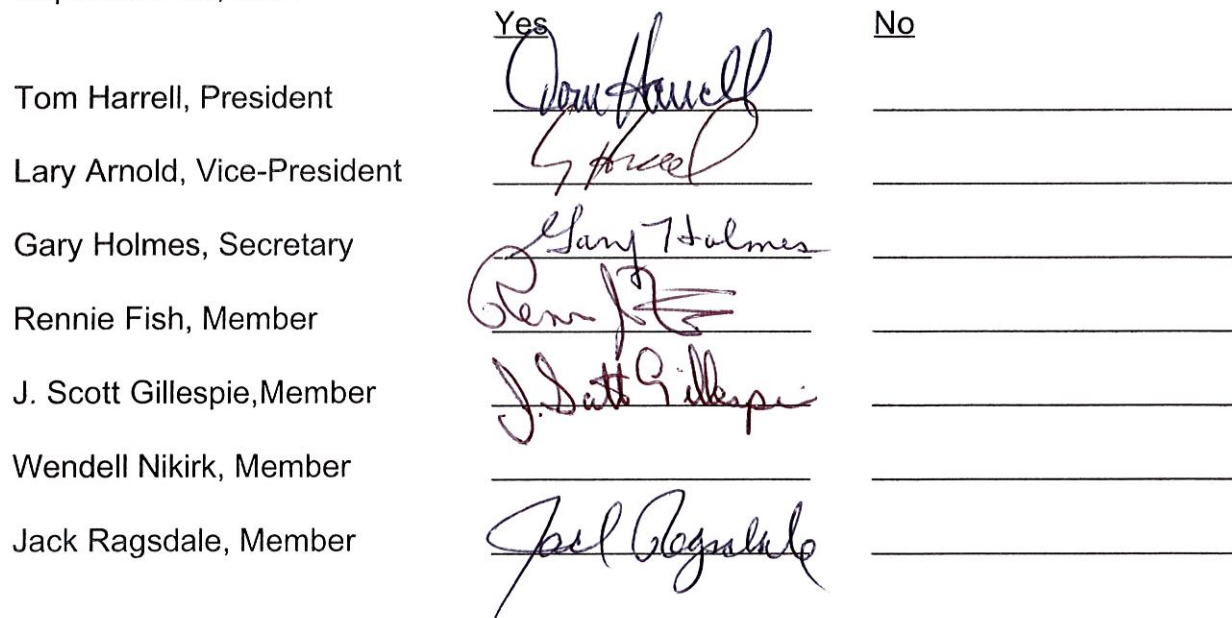 Yes No
Tom Harrell, President Tom Harrell
Lary Arnold, Vice-President
Gary Holmes, Secretary Gary Holmes
Rennie Fish, Member
J. Scott Gillespie,Member J. Scott Gillespie
Wendell Nikirk, Member
Jack Ragsdale, Member Jack Ragsdale